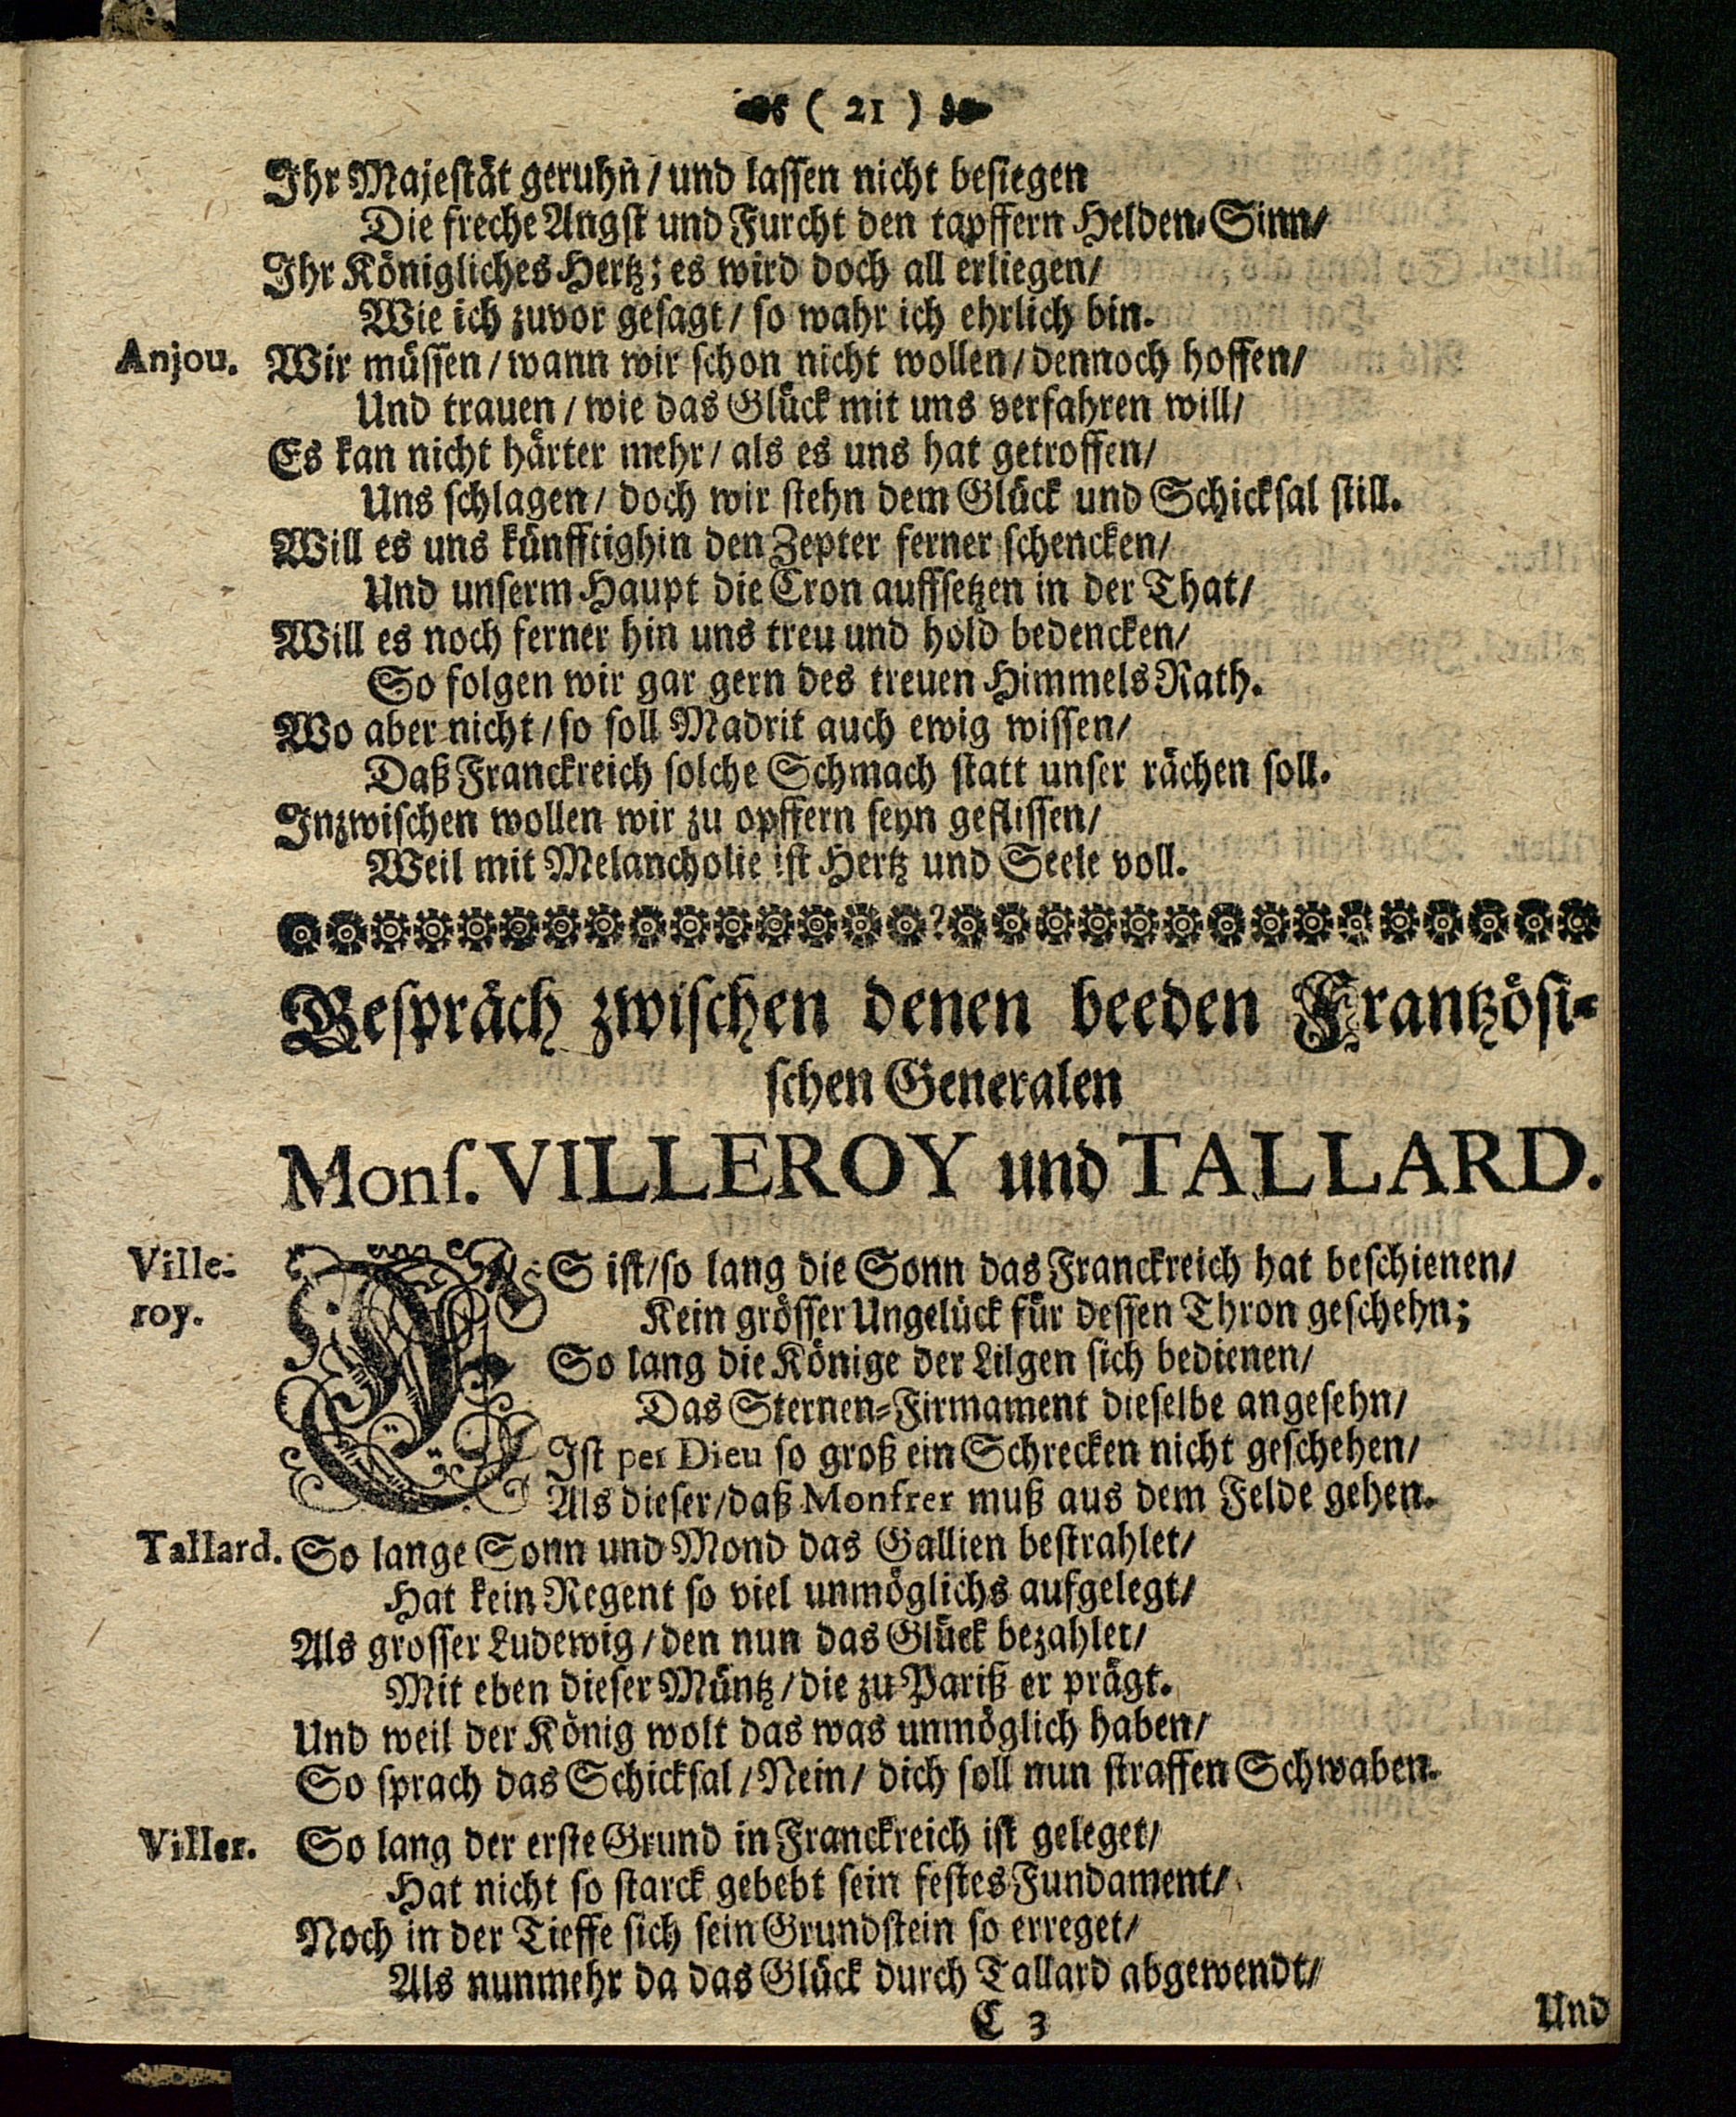 ( 21 )
Ihr Majestät geruhn̄ / und lassen nicht besiegen
Die freche Angst und Furcht den tapffern Helden-Sinn/
Ihr Königliches Hertz; es wird doch all erliegen/
Wie ich zuvor gesagt / so wahr ich ehrlich bin.
Anjou. Wir müssen / wann wir schon nicht wollen / dennoch hoffen/
Und trauen / wie das Glück mit uns verfahren will/
Es kan nicht härter mehr / als es uns hat getroffen/
Uns schlagen / doch wir stehn dem Glück und Schicksal still.
Will es uns künfftighin den Zepter ferner schencken/
Und unserm Haupt die Cron auffsetzen in der That/
Will es noch ferner hin uns treu und hold bedencken/
So folgen wir gar gern des treuen Himmels Rath.
Wo aber nicht / so soll Madrit auch ewig wissen/
Daß Franckreich solche Schmach statt unser rächen soll.
Inzwischen wollen wir zu opffern seyn geflissen/
Weil mit Melancholie ist Hertz und Seele voll.
Gespräch zwischen denen beeden Frantzösi-
schen Generalen
Monſ. VILLEROY und TALLARD.
Ville-
roy.
ES ist/so lang die Sonn das Franckreich hat beschienen/
Kein grösser Ungelück für dessen Thron geschehn;
So lang die Könige der Lilgen sich bedienen/
Das Sternen-Firmament dieselbe angesehn/
Ist per Dieu so groß ein Schrecken nicht geschehen/
Als dieser/daß Monfrer muß aus dem Felde gehen.
Tallard. So lange Sonn und Mond das Gallien bestrahlet/
Hat kein Regent so viel unmöglichs aufgelegt/
Als grosser Ludewig / den nun das Glück bezahlet/
Mit eben dieser Müntz / die zu Pariß er prägt.
Und weil der König wolt das was unmöglich haben/
So sprach das Schicksal / Nein / dich soll nun straffen Schwaben.
Viller. So lang der erste Grund in Franckreich ist geleget/
Hat nicht so starck gebebt sein festes Fundament/
Noch in der Tieffe sich sein Grundstein so erreget/
Als nunmehr da das Glück durch Tallard abgewendt/
C 3
Und